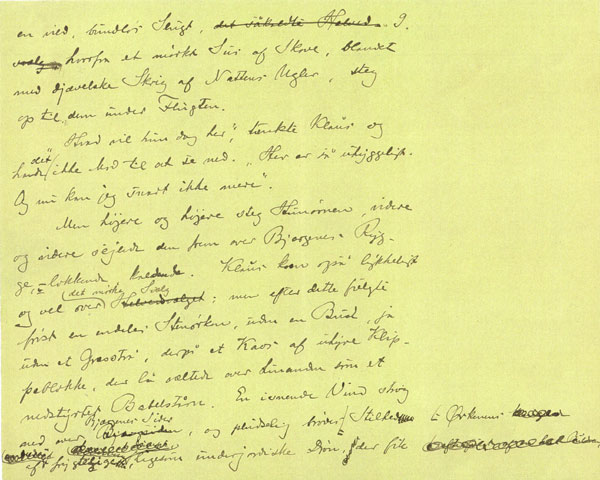 en vild, bundløs Slugt, det såkaldte Helved
hvorfra et mörkt Sus af Skove, blandet
med djævelske Skrig af Nattens Ugler, steg
op til dem under Flugten.
„Hvad vil hun dog her", tænkte Klaus og
havde det ikke Mod til at se ned. „Her er så uhyggeligt.
Og nu kan jeg snart ikke mere".
Men höjere og höjere steg Stenörnen, videre
og videre sejlede den frem over Bjærgenes Ryg-
ge, lokkende
Klaus kom også lykkeligt
og vel over det mörke Svælg; men efter dette fulgte
först en endelös Stenörken, uden en Busk, ja
uden et Græsstrå, derpå et Kaos af uhyre Klip-
peblokke, der lå væltede over hinanden som et
nedstyrtet Babelstårn. En isnende Vind strög
ned over Bjærgenes Sider, og pludselig brödes Stilheden
ligesom underjordiske Drön, der fik